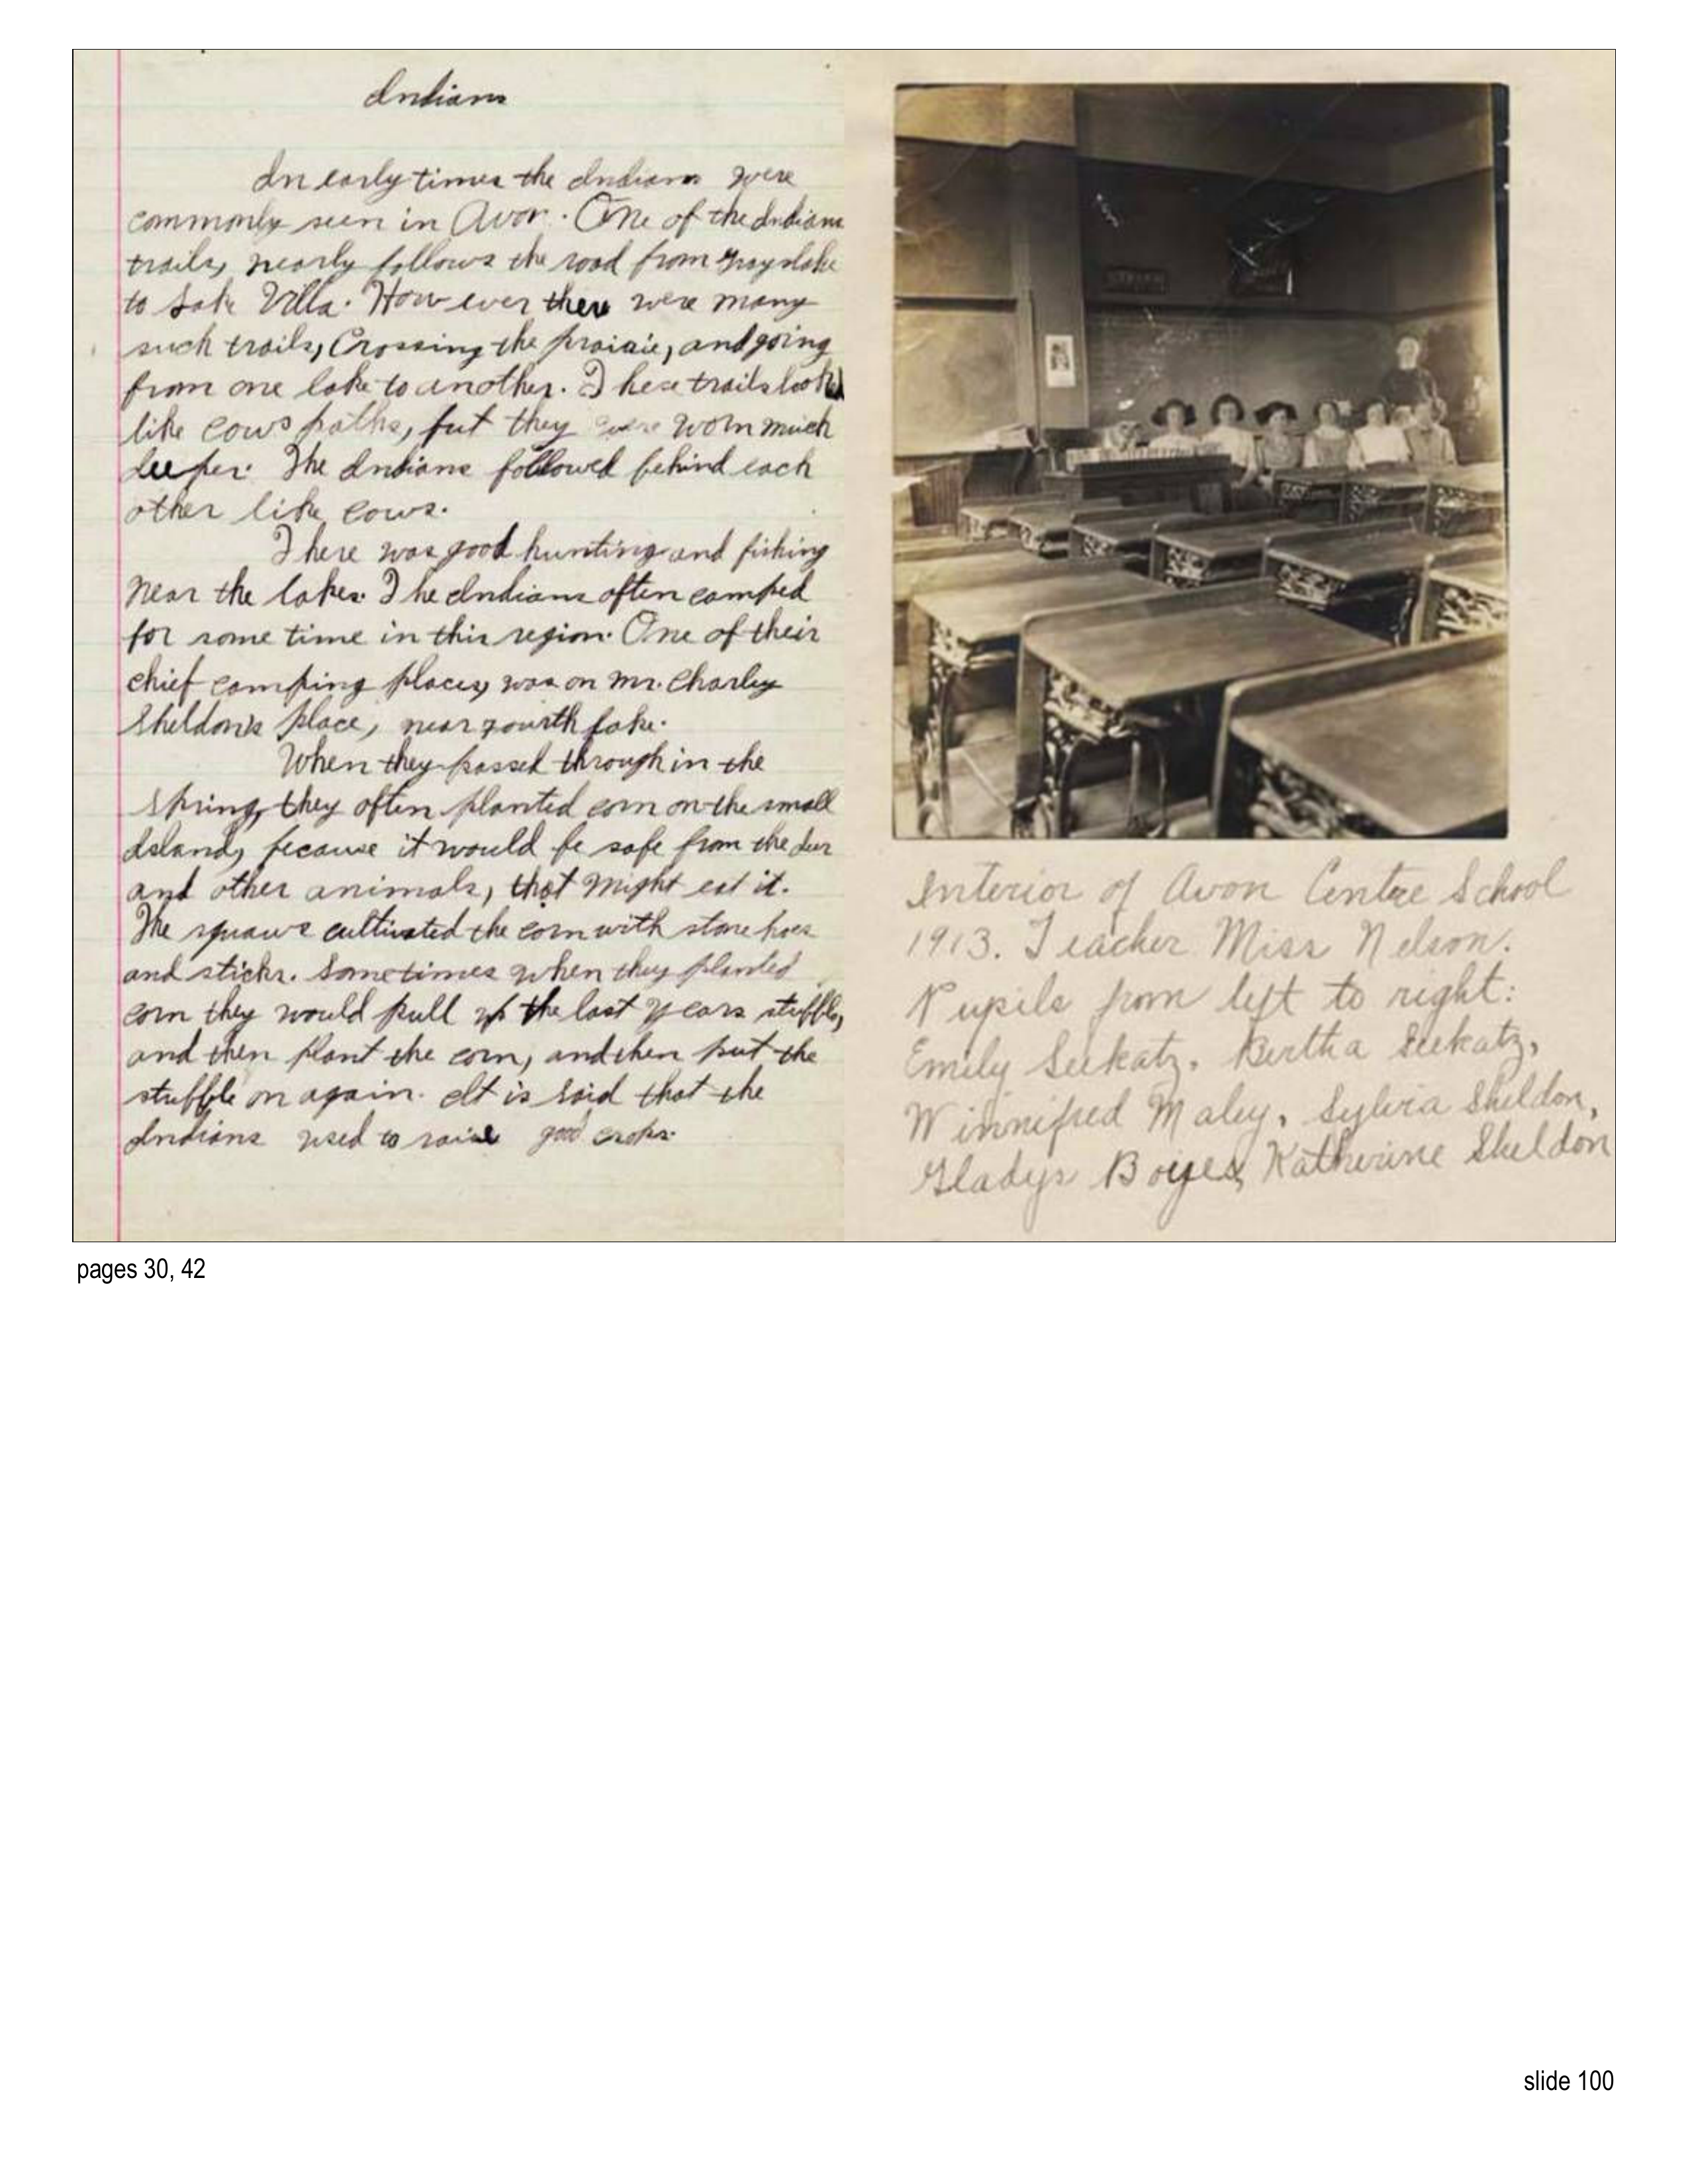 Indians
In early times the Indians were
commonly seen in Avon. One of the Indians
trails, nearly follows the road from Grayslake
to Lake Villa. How ever there were many
such trails, Crossing the praiaie, and going
from one lake to another. These trails looked
like cows paths, but they were worn much
deeper. The Indians followed behind each
other like cows.
There was good hunting and fishing
near the lakes. The Indians often camped
for some time in this region. One of their
chief camping places, was on Mr. Charley
Sheldon's place, near Fourth Lake.
When they passed through in the
spring, they often planted corn on the small
Island, because it would be safe from the deer
and other animals, that might eat it.
The squaws cultivated the corn with stone hoes
and sticks. Sometimes when they planted
corn they would pull up the last years stubble,
and then plant the corn, and then put the
stubble on again. It is said that the
Indians used to raise good crops.
Interior of Avon Centre School
1913. Teacher Miss Nelson.
Pupils from left to right:
Emily Seekatz, Bertha Seekatz,
Winnifred Maley, Sylvia Sheldon,
Gladys Boyes, Katherine Sheldon
pages 30, 42
slide 100